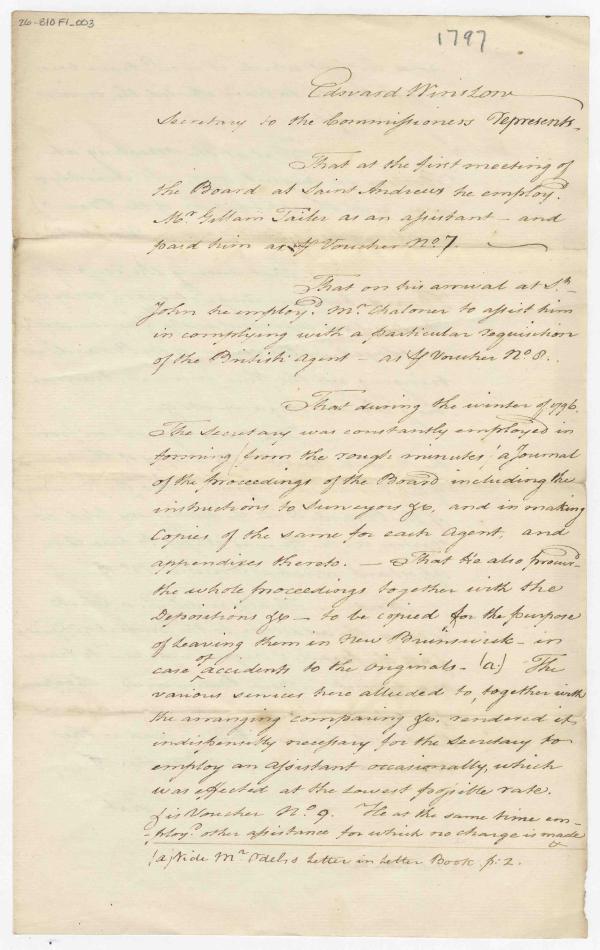 26-810 F1_003
1797
Edward Winslow
Secretary to the Commissioners represents.
That at the first meeting of
the Board at Saint Andrews he employ.d
Mr. Gillam Tailer as an assistant – and
paid him as Voucher No. 7.
That on his arrival at St.
John he employ.d Mr. Chaloner to assist him
in complying with a particular requisition
of the British Agent – as Voucher No. 8.
That during the winter of 1796.
The Secretary was constantly employed in
forming (from the rough minutes) a Journal
of the Proceedings of the Board including the
instructions to Surveyors &c, and in making
Copies of the same for each Agent, and
appendixes thereto. – That he also procur'd
the whole proceedings together with the
Depositions &c – to be copied for the purpose
of leaving them in New Brunswick – in
case of accidents to the originals – (a.) The
various services here alluded to, together with
the arranging comparing &c. rendered it
indispensibly necessary for the Secretary to
employ an Assistant occasionally, which
was effected at the lowest possible rate.
Voucher No. 9. He at the same time em-
-ploy.d other assistance for which no charge is made
(a) Vide Mr. Odel's Letter in Letter Book p: 2.